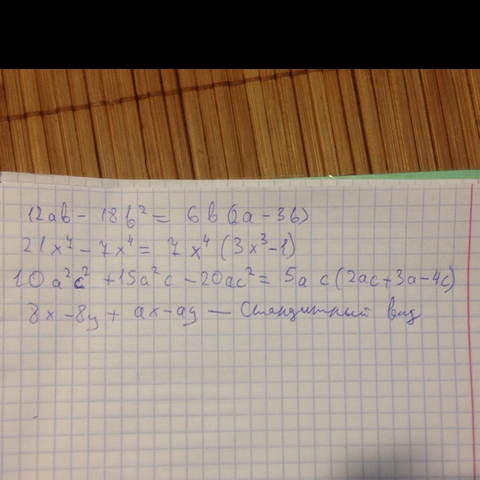 12ab - 18b² = 6b(2a - 3b)
21x⁷ - 7x⁴ = 7x⁴(3x³-1)
10a²c² + 15a²c - 20ac² = 5ac(2ac+3a-4c)
8x - 8y + ax - ay — Стандартный вид